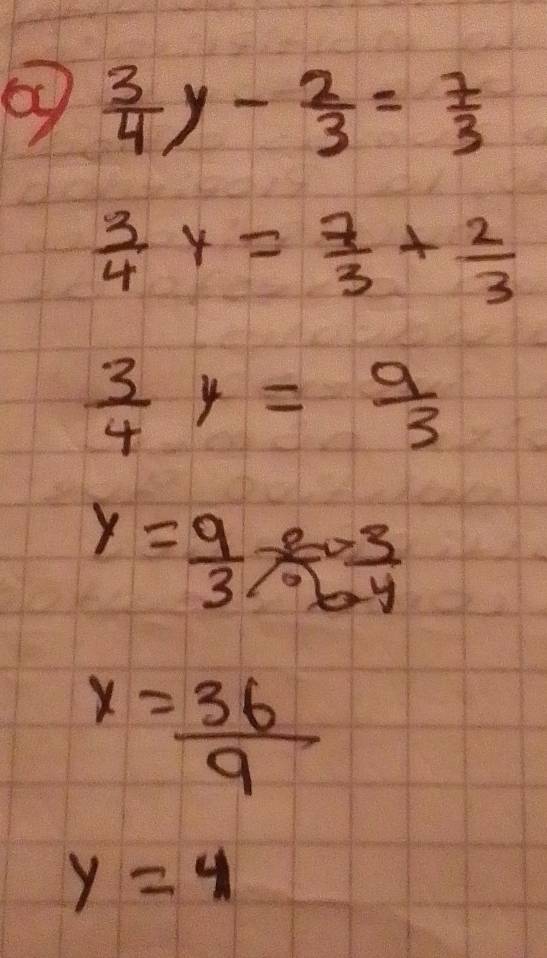 a) 3/4 y - 2/3 = 7/3
3/4 y = 7/3 + 2/3
3/4 y = 9/3
y = 9/3 ÷ 3/4
x = 36/9
y = 4